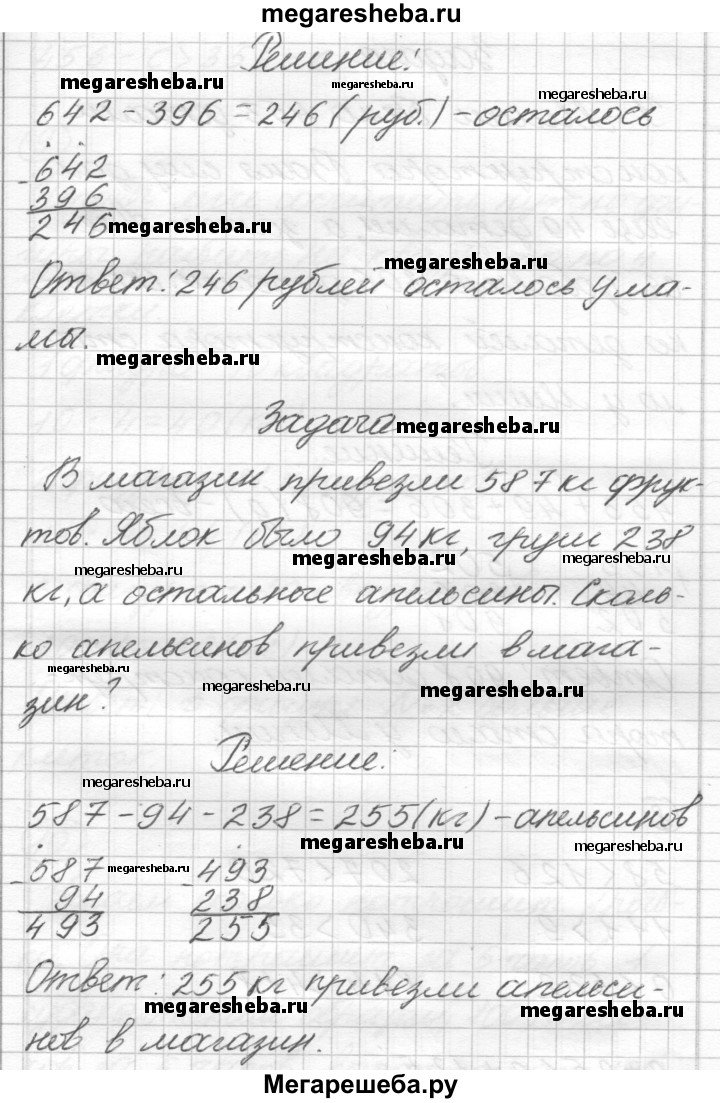 megaresheba.ru
Решение:
megaresheba.ru megaresheba.ru megaresheba.ru
642 - 396 = 246 (руб.) - осталось
- 642
396
246 megaresheba.ru
megaresheba.ru
Ответ: 246 рублей осталось у ма-
мы.
megaresheba.ru
Задача megaresheba.ru
В магазин привезли 587 кг фрук-
тов. Яблок было 94 кг, груш 238
megaresheba.ru megaresheba.ru megaresheba.ru
кг, а остальные апельсины. Сколь-
ко апельсинов привезли в мага-
megaresheba.ru megaresheba.ru megaresheba.ru
зин?
Решение:
megaresheba.ru
587 - 94 - 238 = 255 (кг) - апельсинов
megaresheba.ru megaresheba.ru
- 587 megaresheba.ru - 493
94 238
493 255
Ответ: 255 кг привезли апельси-
megaresheba.ru megaresheba.ru
нов в магазин.
Мегарешеба.ру